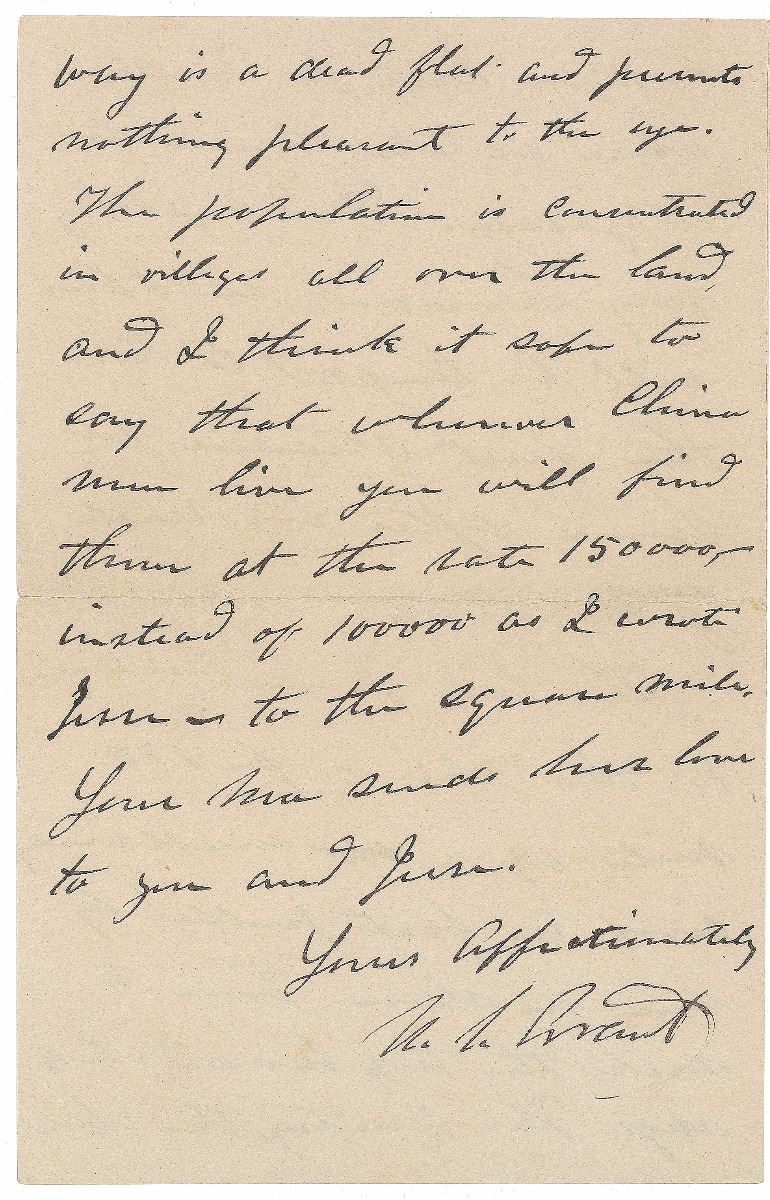 way is a dead flat and presents
nothing pleasant to the eye.
The population is concentrated
in villages all over the land,
and I think it safe to
say that wherever China
men live you will find
them at the rate 150000,—
instead of 100000 as I wrote
Jesse — to the square mile.
Your Ma sends her love
to you and Jesse.
Yours Affectionately
U. S. Grant